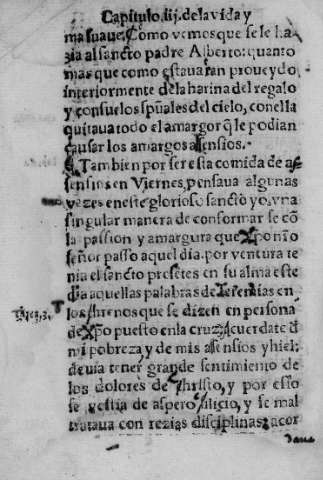 Capitulo.iij. de la vida y
mas uaue. Como vemos que se le ha
zia al sancto padre Alberto: quanto
mas que como estaua tan proueydo
interiormente de la harina del regalo
y consuelos spũales del cielo, con ella
quitaua todo el amargor q̃ le podian
causar los amargos assensios.
Tambien por ser esta comida de as
sensios en Viernes, pensaua algunas
vezes en este glorioso sancto yo, vna
singular manera de conformar se cõ
la passion y amargura que Xpo nr̃o
señor passo aquel dia. por ventura te
nia el sancto presẽtes en su alma este
dia aquellas palabras de Ieremias en
los threnos que se dizen en persona
de Xp̃o puesto en la cruz, Acuerdate d̃
mi pobreza y de mis assensios y hiel:
deuia tener grande sentimiento de
los dolores de christo, y por esso
se vestia de aspero silicio, y se mal
trataua con rezias disciplinas: acor
dãua